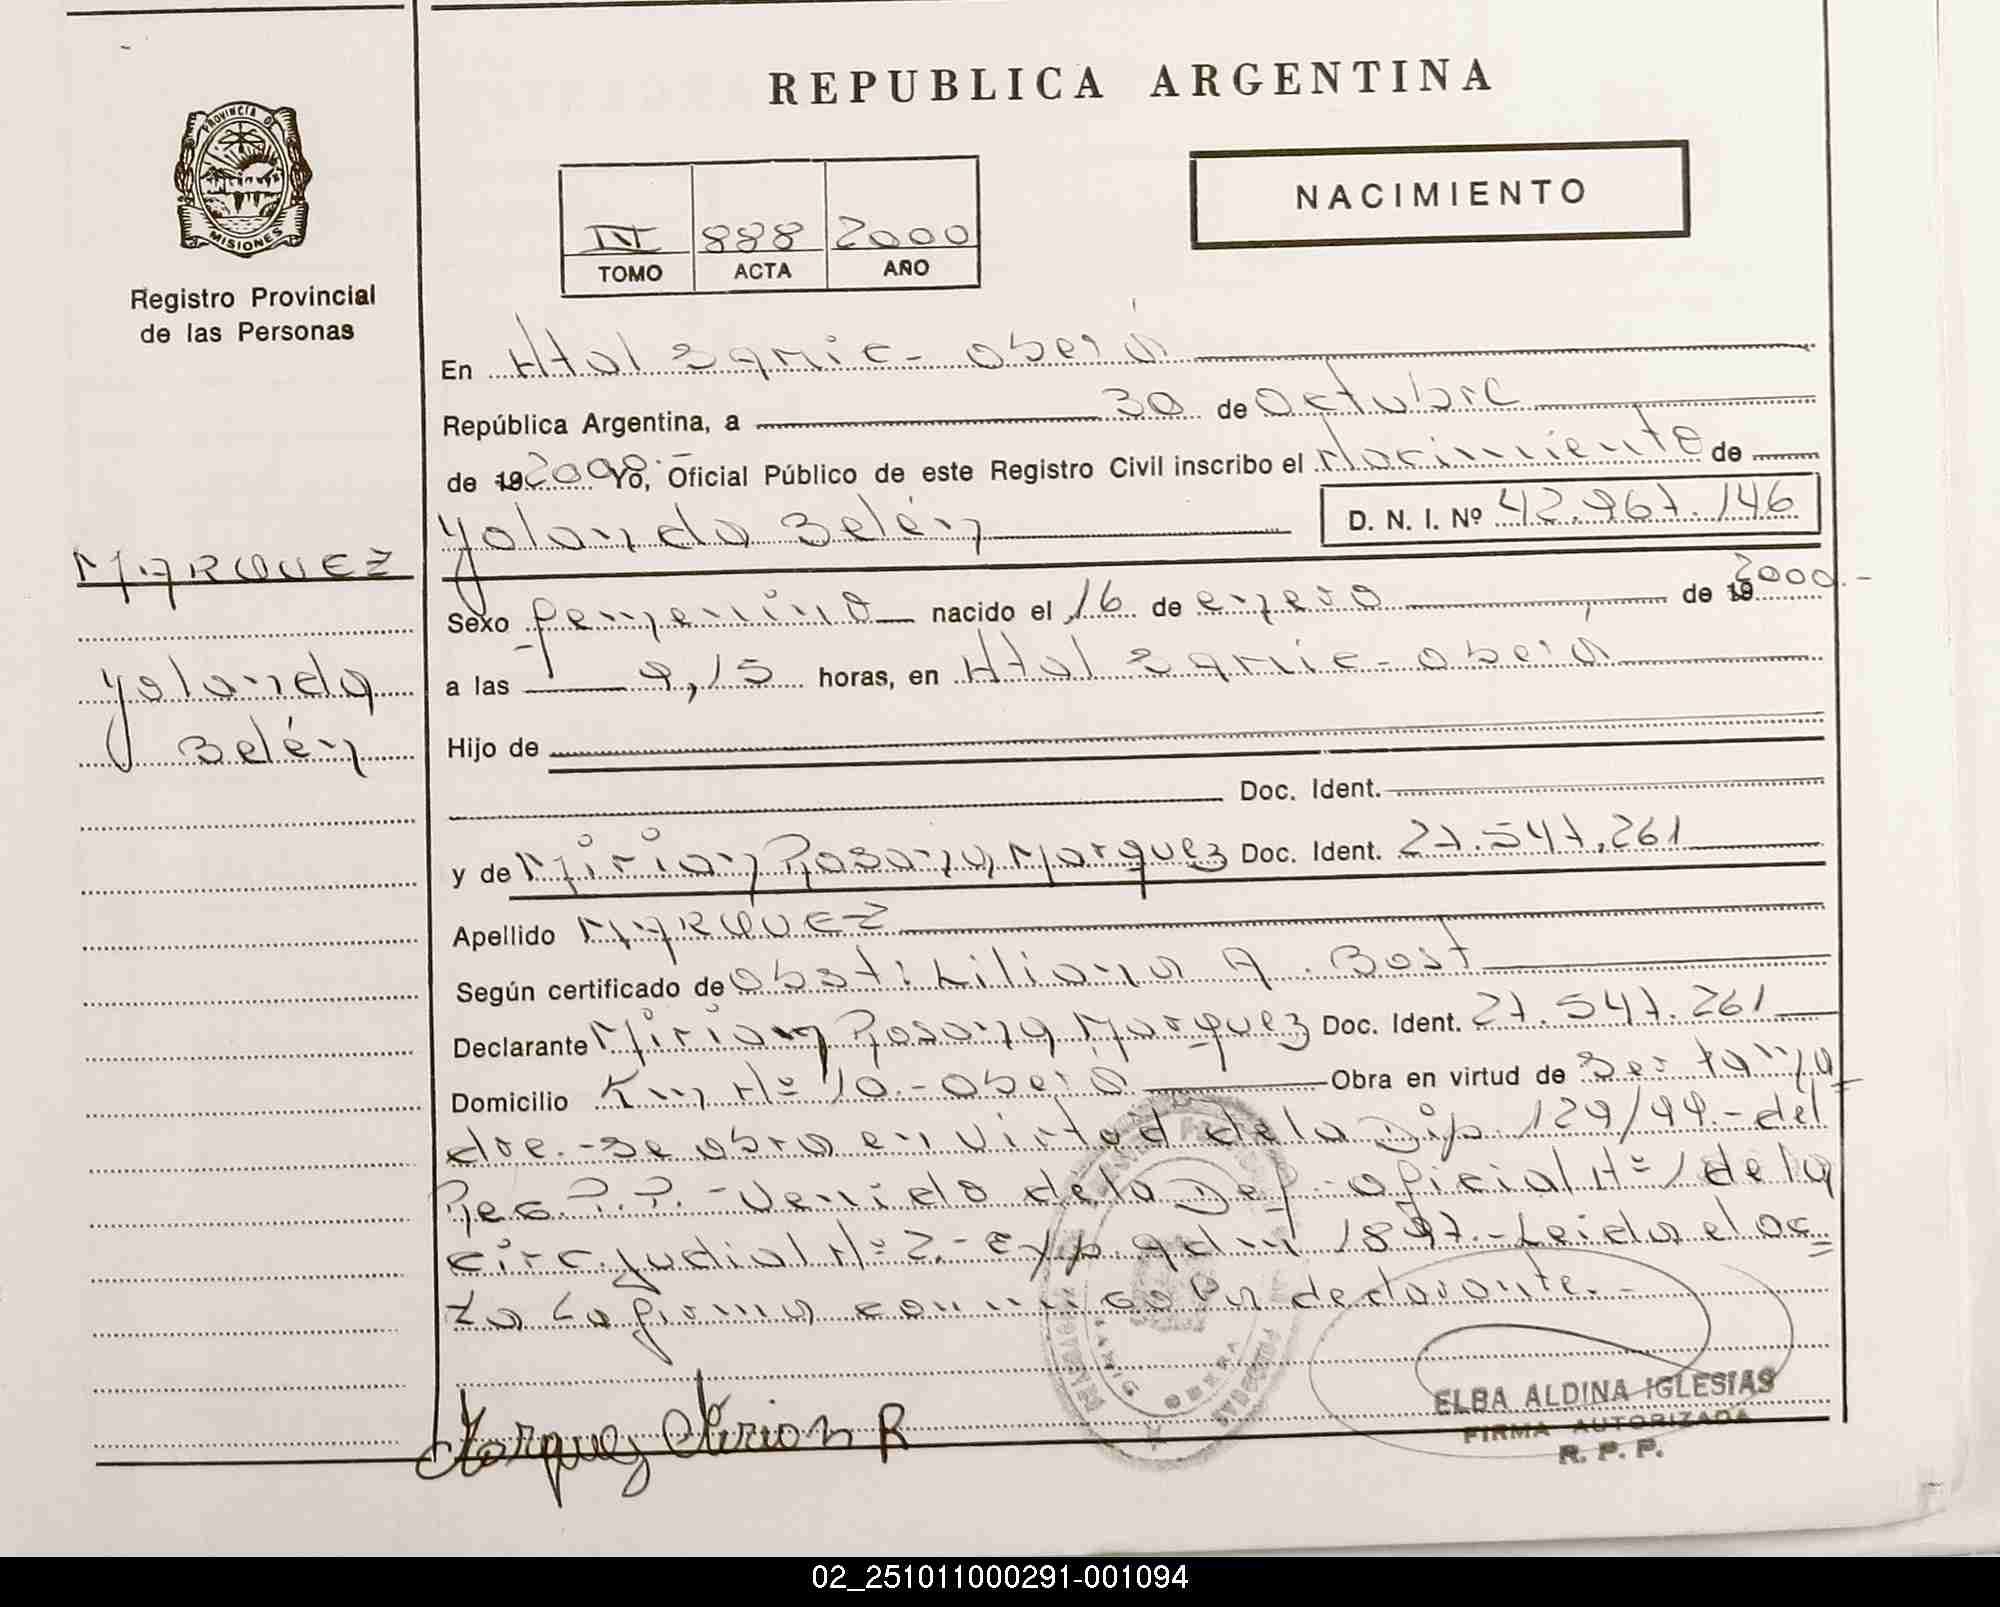 REPUBLICA ARGENTINA
PROVINCIA DE
MISIONES
Registro Provincial
de las Personas
NACIMIENTO
888 2000
TOMO ACTA AÑO
En Htal Samic - oberá
República Argentina, a 30 de Octubre
de 19 2000.- Yo, Oficial Público de este Registro Civil inscribo el Nacimiento de
Yolanda Belén D. N. I. Nº 42.967.146
MARQUEZ
Yolanda
Belén
Sexo femenino nacido el 16 de enero de 19 2000.-
a las 9,15 horas, en Htal Samic - oberá
Hijo de
Doc. Ident.
y de Mirian Rosana Marquez Doc. Ident. 27.547.261
Apellido MARQUEZ
Según certificado de obst: Liliana A. Bost
Declarante Mirian Rosana Marquez Doc. Ident. 27.547.261
Domicilio Km Nº 10.- oberá Obra en virtud de Ser la ma
dre.- Se obra en virtud de la Dip. 129/99.- del
Reg. P. P. - Venido de la Def. oficial Nº 1 de la
circ. judicial Nº 2.- Exp. adm 1897.- Leida el ac
ta La firma conmigo La declarante.-
Marquez Mirian R
ELBA ALDINA IGLESIAS
FIRMA AUTORIZADA
R. P. P.
02_251011000291-001094